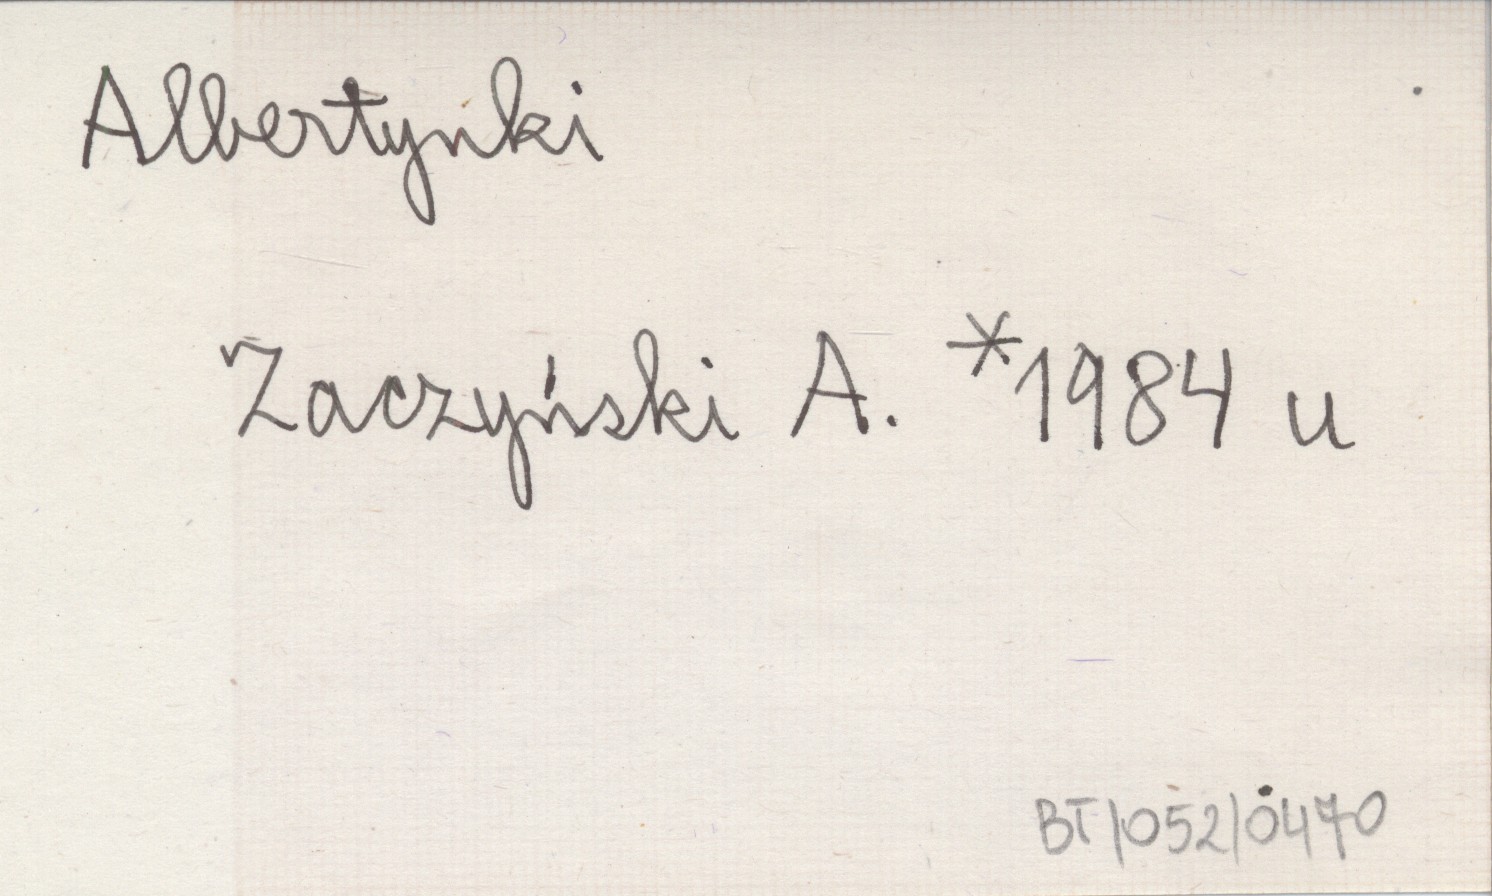 Albertynki
Zaczyński A. *1984 u
BT/052/0470